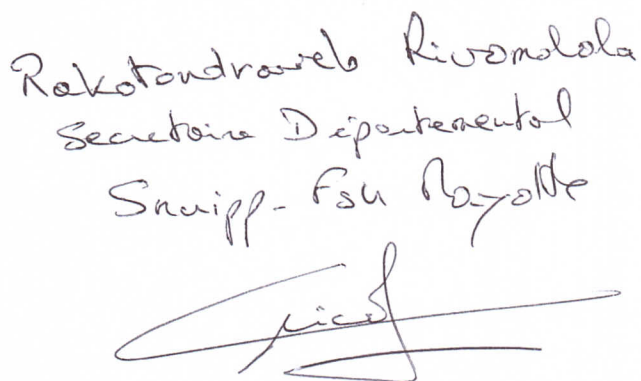 Rakotondravelo Rivomalala
Secrétaire Départemental
Snuipp-FSU Mayotte
Rico